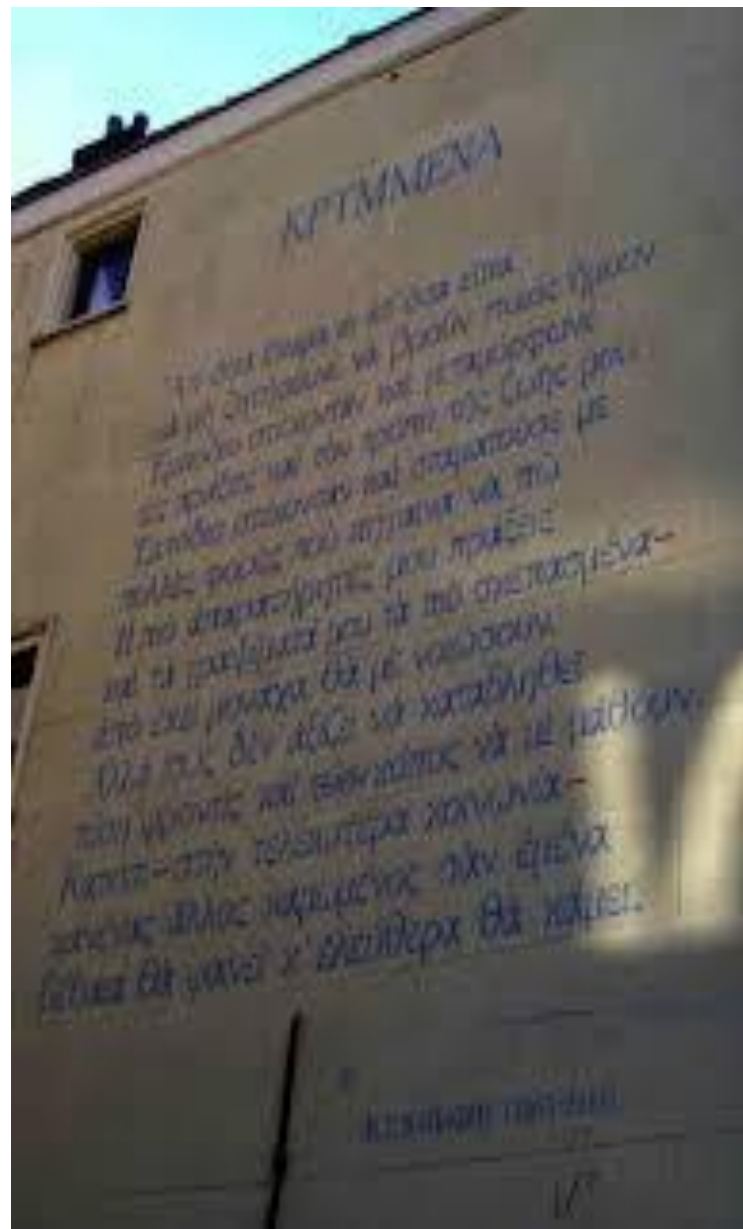 ΚΡΥΜΜΕΝΑ
Απ' όσα έκαμα κι απ' όσα είπα
να μη ζητήσουνε να βρούν ποιός ήμουν.
Εμπόδιο στέκονταν και μεταμόρφωνε
τες πράξεις και τον τρόπο της ζωής μου.
Εμπόδιο στέκονταν και σταματούσε με
πολλές φορές που πήγαινα να πω.
Η πιο απαρατήρητές μου πράξεις
και τα γραψίματά μου τα πιο σκεπασμένα—
από εκεί μονάχα θα με νοιώσουν.
Άλλα ίσως δεν αξίζει να καταβληθεί
τόση φροντίς και τόσος κόπος να με μάθουν.
Κατόπι—στην τελειοτέρα κοινωνία—
κανένας άλλος καμωμένος σαν εμένα
βέβαια θα φανεί κ' ελεύθερα θα κάμει.